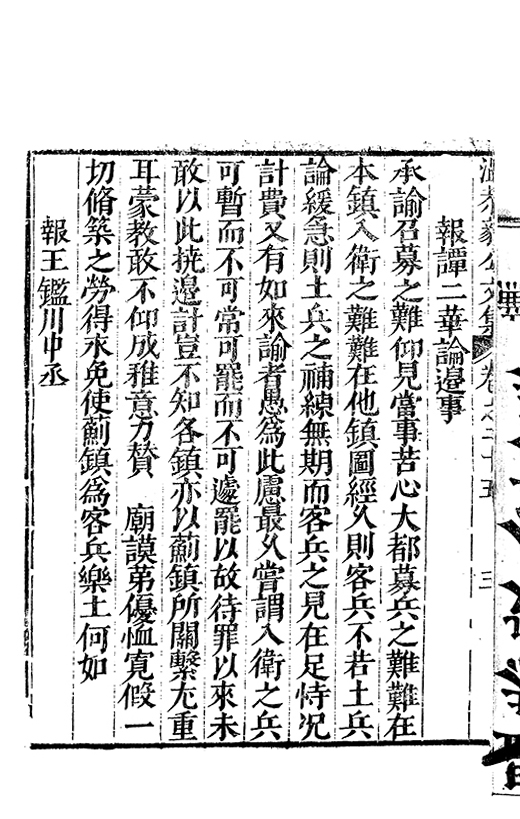 文集 卷之二十五 三
報譚二華論邉事
承諭召募之難仰見當事苦心大都募兵之難難在
本鎮入衛之難難在他鎮圖經久則客兵不若土兵
論緩急則土兵之補練無期而客兵之見在足恃况
計費又有如來諭者愚為此慮最久嘗謂入衛之兵
可暫而不可常可罷而不可遽罷以故待罪以來未
敢以此撓邉計豈不知各鎮亦以薊鎮所關繫尤重
耳蒙教敢不仰成雅意力贊 廟謨第優恤寬假一
切脩築之勞得永免使薊鎮為客兵樂土何如
報王鑑川中丞